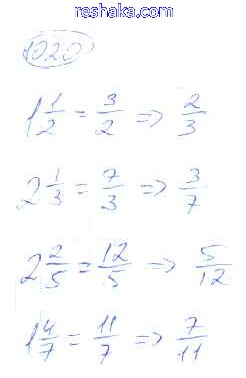 reshaka.com
1020
1 1/2 = 3/2 => 2/3
2 1/3 = 7/3 => 3/7
2 2/5 = 12/5 => 5/12
1 4/7 = 11/7 => 7/11